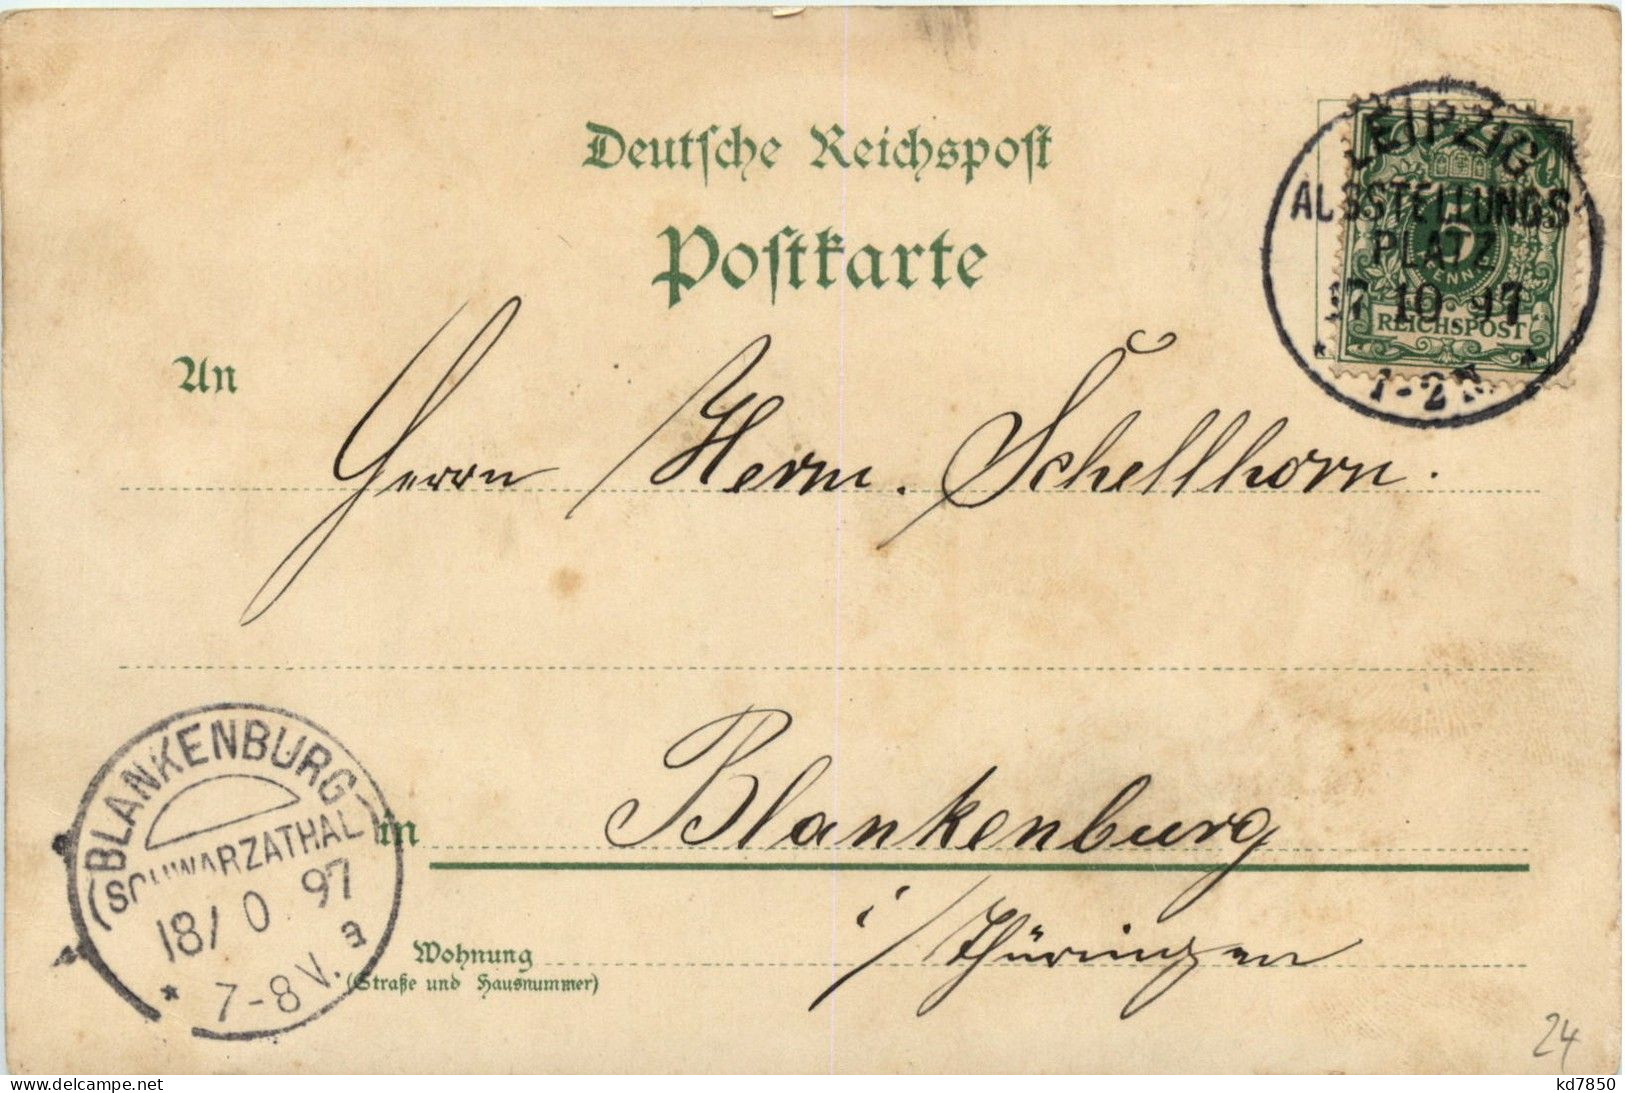 Deutsche Reichspost
Postkarte
LEIPZIG
AUSSTELLUNGS
PLATZ
17 10 97
1-2 N
5
PFENNIG
REICHSPOST
An
Herrn Herm. Schellhorn.
in Blankenburg
i/Thüringen
Wohnung
(Straße und Hausnummer)
BLANKENBURG
SCHWARZATHAL
18/ 0 97
7-8 V. a
24
kd7850